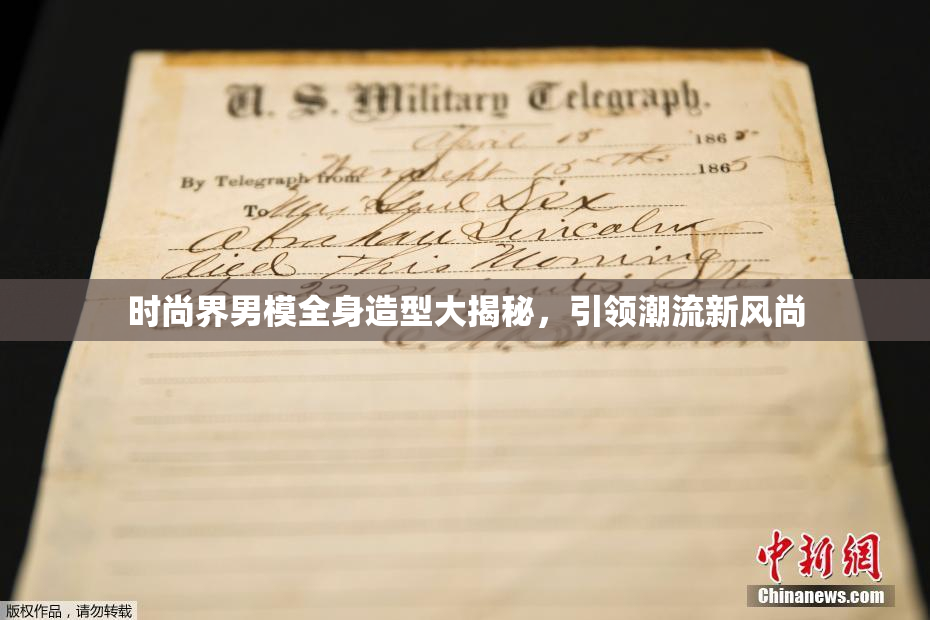 U. S. Military Telegraph.
April 15 1865
By Telegraph from War Dept 15th 1865
To Maj Genl Dix
Abraham Lincoln
died This Morning
at 22 minutes after
时尚界男模全身造型大揭秘，引领潮流新风尚
E. M. Stanton
中新网
Chinanews.com
版权作品，请勿转载